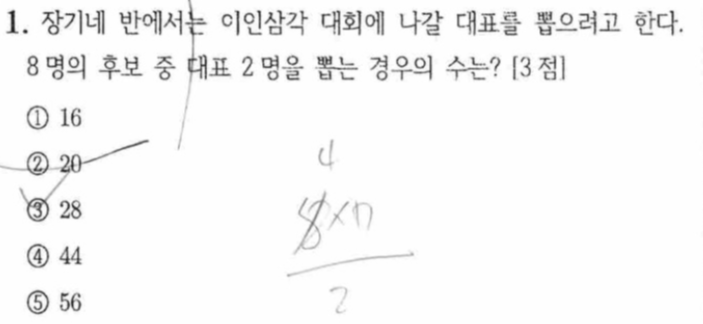 1. 장기네 반에서는 이인삼각 대회에 나갈 대표를 뽑으려고 한다.
8명의 후보 중 대표 2명을 뽑는 경우의 수는? [3점]
① 16
② 20
③ 28
④ 44
⑤ 56
4
8×7
2